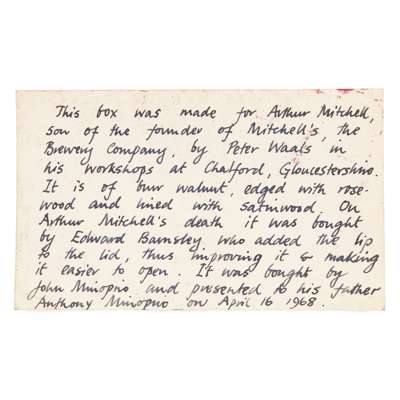 This box was made for Arthur Mitchell,
son of the founder of Mitchell's, the
Brewery Company, by Peter Waals in
his workshops at Chalford, Gloucestershire.
It is of burr walnut, edged with rose-
wood and lined with satinwood. On
Arthur Mitchell's death it was bought
by Edward Barnsley, who added the lip
to the lid, thus improving it & making
it easier to open. It was bought by
John Minoprio and presented to his father
Anthony Minoprio on April 16 1968.